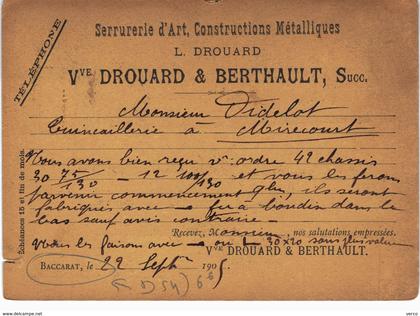 TÉLÉPHONE
Serrurerie d'Art, Constructions Métalliques
L. DROUARD
Vve DROUARD & BERTHAULT, Succ.
Monsieur Didelot
Quincaillerie à Mirecourt
Nous avons bien reçu v. ordre 42 chassis
30 75/130 — 12 100/130 et vous les ferons
parvenir commencement ils seront
fabriqués avec fer à boudin dans le
bas sauf avis contraire —
Recevez, Monsieur, nos salutations empressées.
Nous les faisons avec ou L 30x20 sans plus value
Vve DROUARD & BERTHAULT.
BACCARAT, le 22 Septbre 1905
Échéances 15 et fin de mois.
delcampe.net
verco